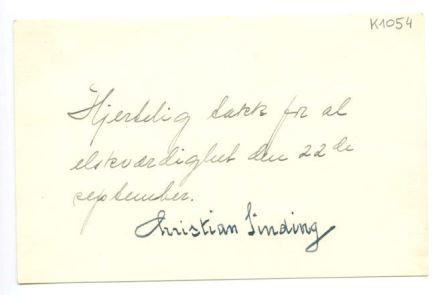 K1054
Hjertelig takk for al
elskværdighet den 22 de
september.
Christian Sinding